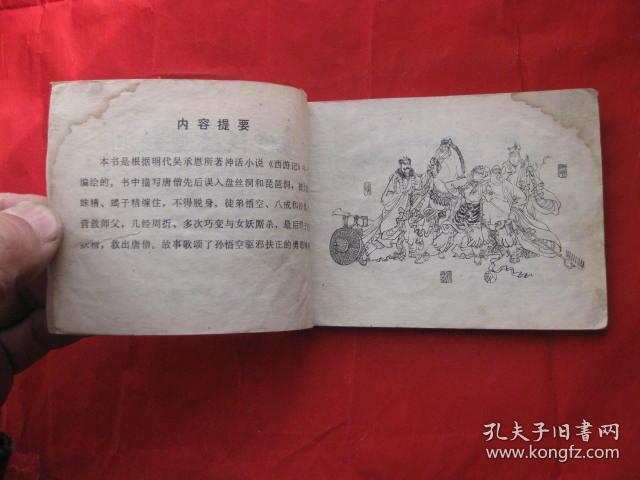 内容提要
本书是根据明代吴承恩所著神话小说《西游记》
编绘的。书中描写唐僧先后误入盘丝洞和琵琶洞，
蛛精、蝎子精缠住，不得脱身。徒弟悟空、八戒和
营救师父，几经周折，多次巧变与女妖厮杀，最后
妖精，救出唐僧。故事歌颂了孙悟空驱邪扶正的勇
孔夫子旧书网
www.kongfz.com